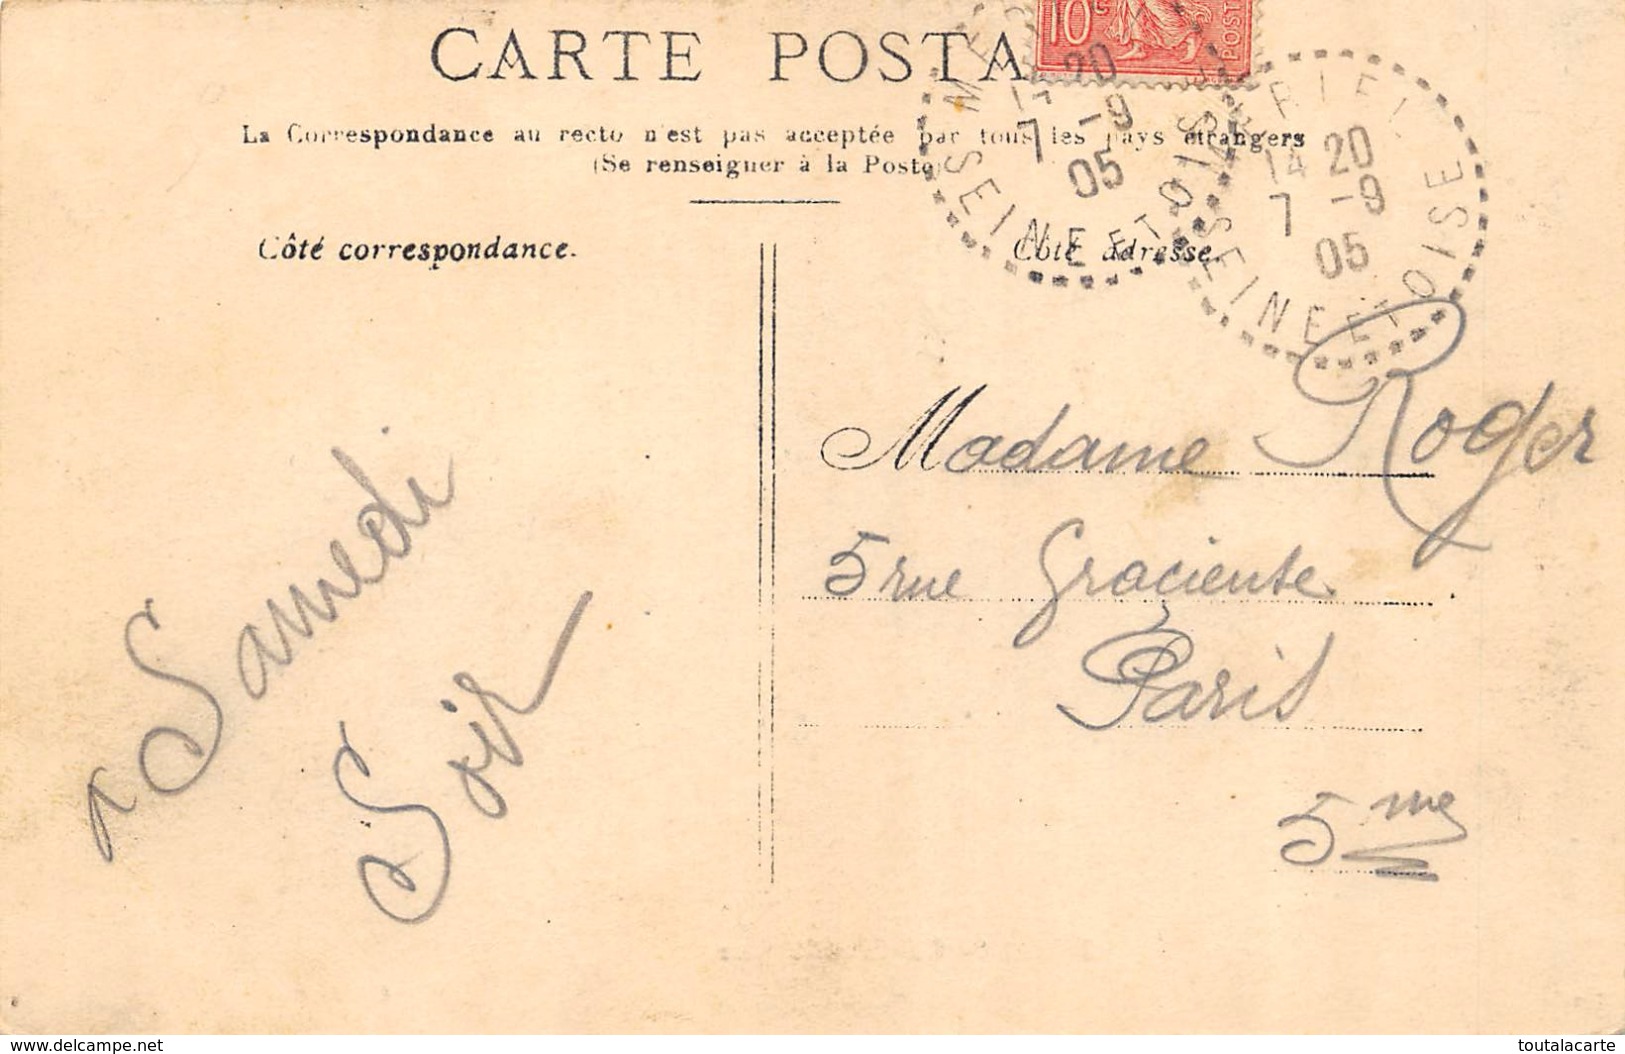 CARTE POSTA
10 c
POST
La Correspondance au recto n'est pas acceptée par tous les pays étrangers
(Se renseigner à la Poste)
MERIEL
14 20
7 -9
05
SEINE ET OISE
MERIEL
14 20
7 -9
05
SEINE ET OISE
Côté correspondance.
Côté adresse.
Madame Roger
5 rue Graciense
Paris
5me
à Samedi
Soir
www.delcampe.net
toutalacarte